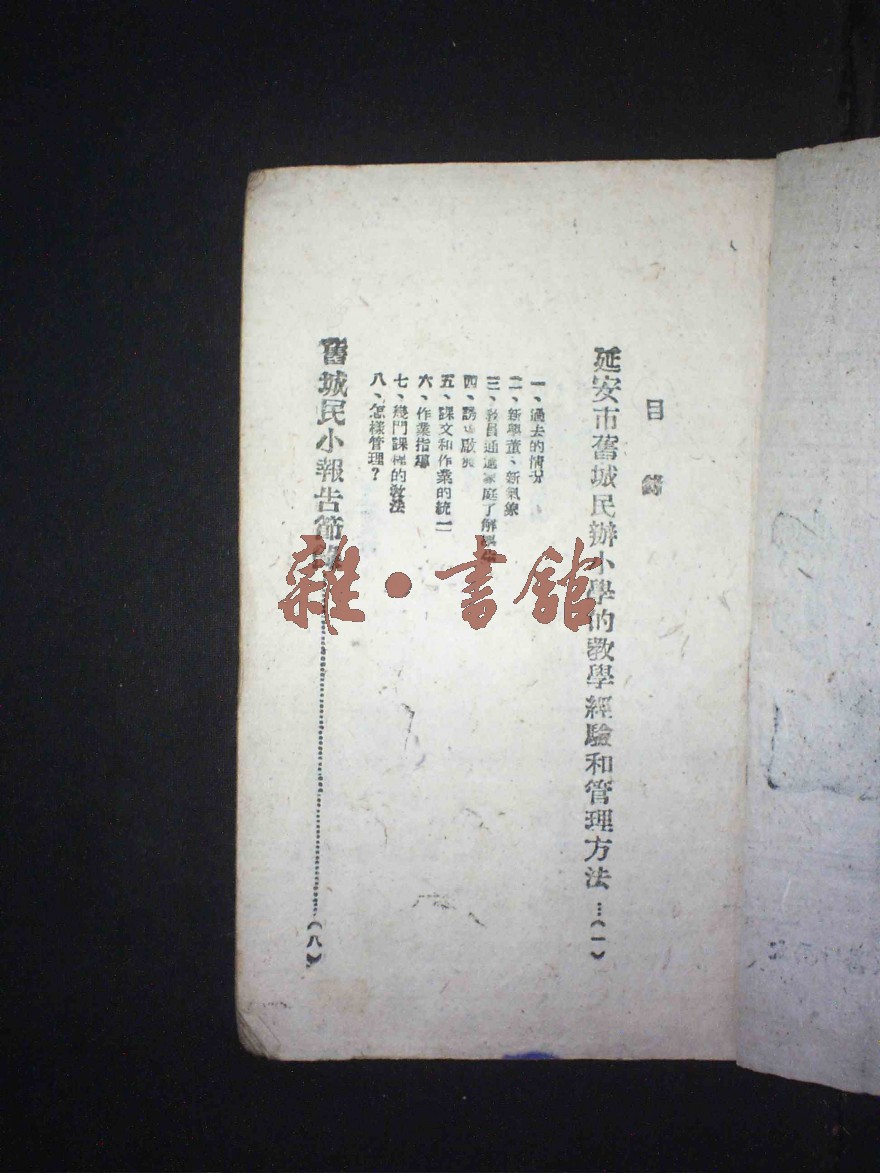 目錄
延安市舊城民辦小學的教學經驗和管理方法…(一)
一、過去的情況
二、新學董、新氣象
三、教員通過家庭了解
四、誘導啟發
五、課文和作業的統一
六、作業指導
七、幾門課程的教法
八、怎樣管理？
舊城民小報告節錄…(八)
雜·書館